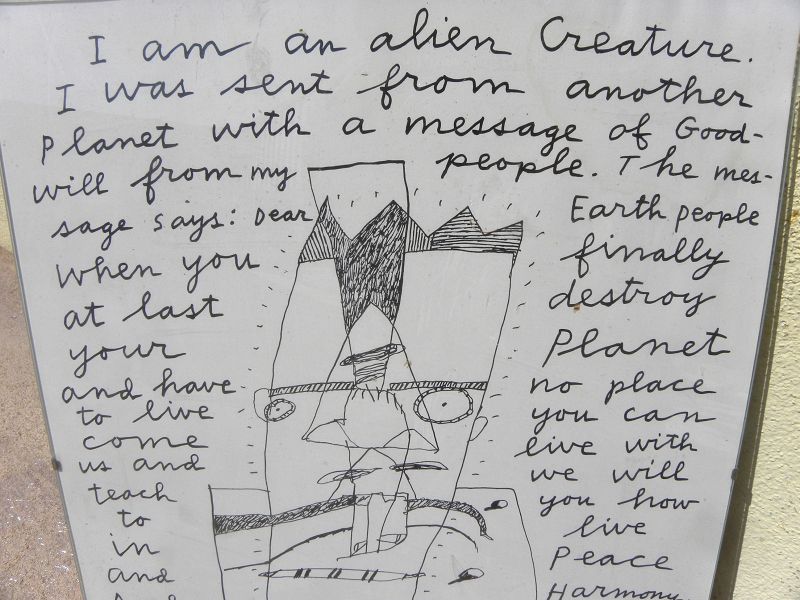 I am an alien Creature.
I was sent from another
Planet with a message of Good-
will from my people. The mes-
sage says: Dear Earth people
when you finally
at last destroy
your Planet
and have no place
to live you can
come live with
us and we will
teach you how
to live
in Peace
and Harmony.